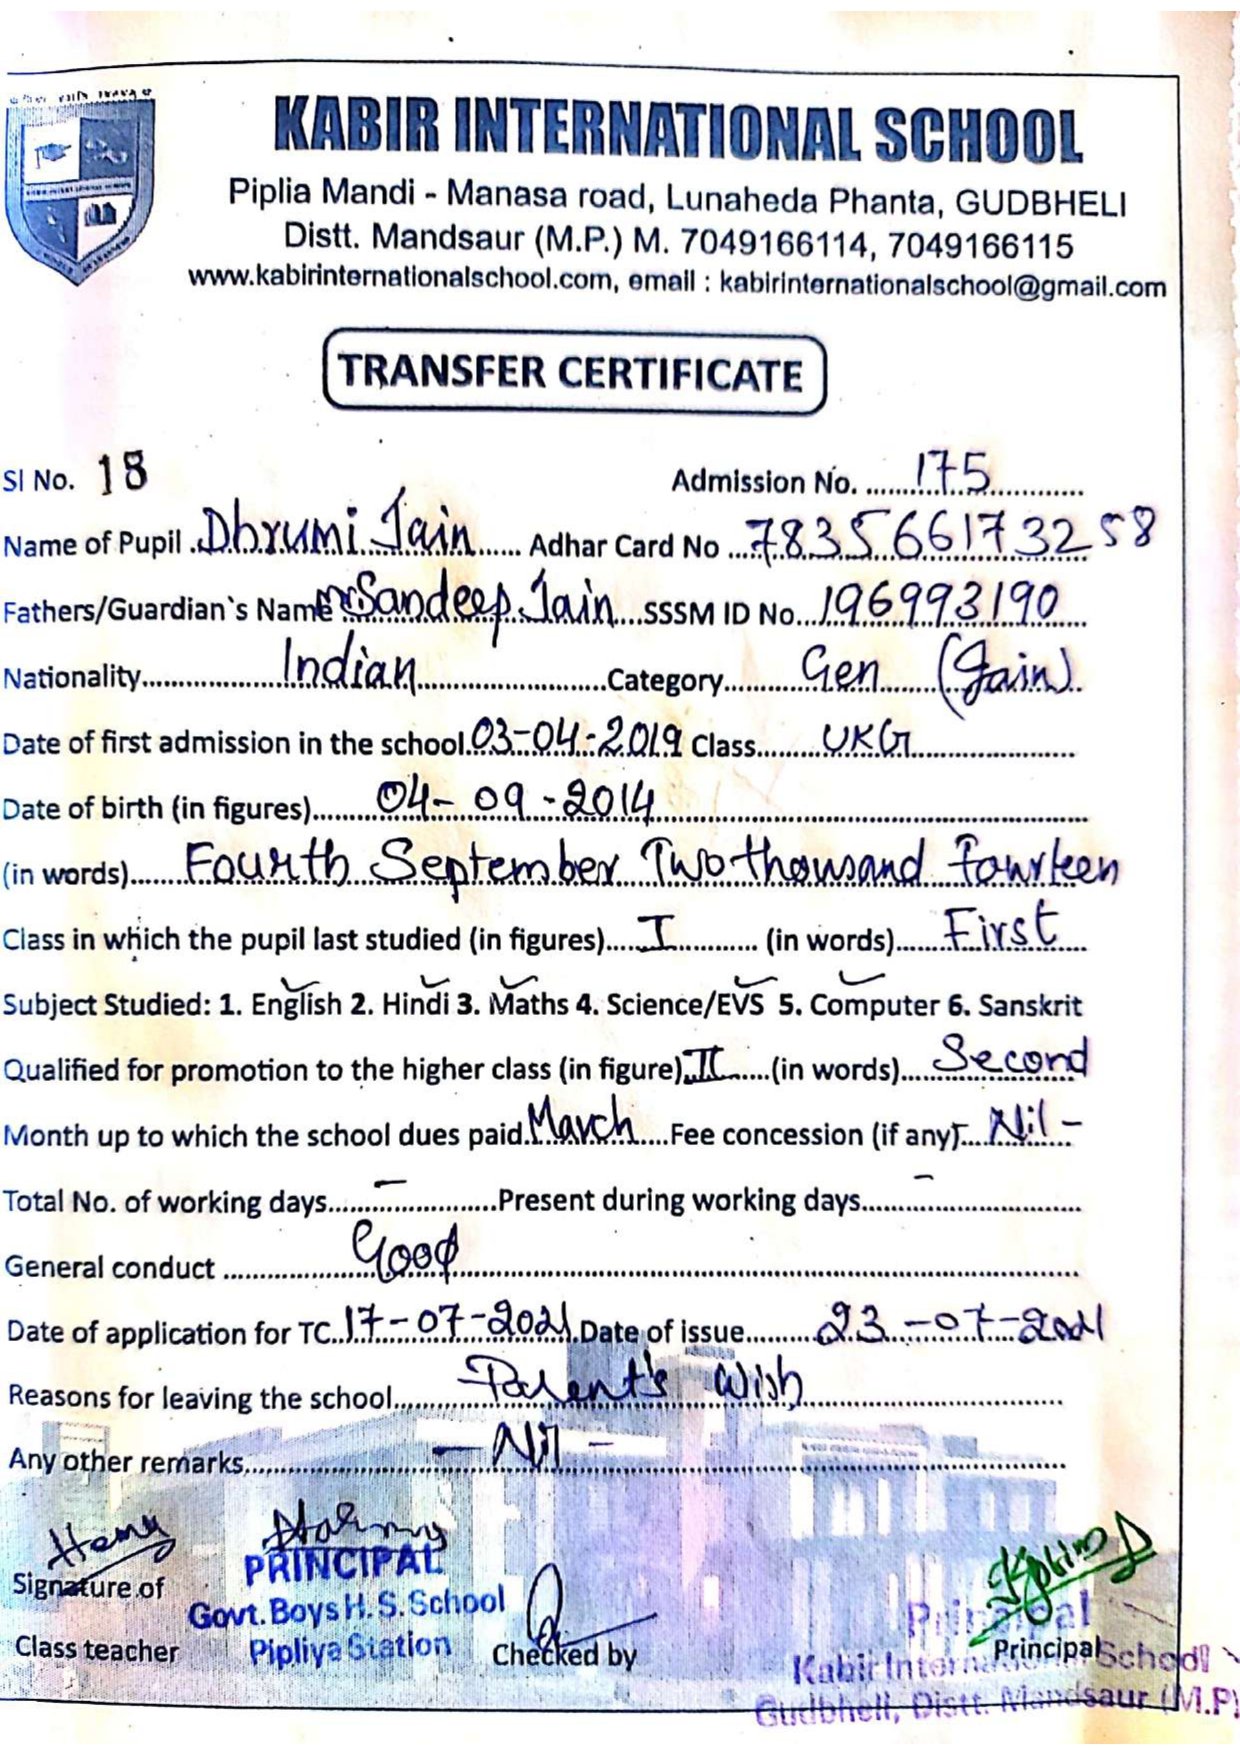 KABIR INTERNATIONAL SCHOOL
Piplia Mandi - Manasa road, Lunaheda Phanta, GUDBHELI
Distt. Mandsaur (M.P.) M. 7049166114, 7049166115
www.kabirinternationalschool.com, email : kabirinternationalschool@gmail.com
TRANSFER CERTIFICATE
SI No. 18 Admission No. 175
Name of Pupil Dhrumi Jain Adhar Card No 783566173258
Fathers/Guardian`s Name Mr Sandeep Jain SSSM ID No. 196993190
Nationality Indian Category Gen (Jain)
Date of first admission in the school 03-04-2019 Class UKG
Date of birth (in figures) 04-09-2014
(in words) Fourth September Two thousand Fourteen
Class in which the pupil last studied (in figures) I (in words) First
Subject Studied: 1. English 2. Hindi 3. Maths 4. Science/EVS 5. Computer 6. Sanskrit
Qualified for promotion to the higher class (in figure) II (in words) Second
Month up to which the school dues paid March Fee concession (if any) Nil -
Total No. of working days - Present during working days -
General conduct Good
Date of application for TC 17-07-2021 Date of issue 23-07-2021
Reasons for leaving the school Parent's Wish
Any other remarks - Nil -
PRINCIPAL
Signature of Govt. Boys H. S. School Principal
Class teacher Pipliya Station Checked by Principal
Kabir International School
Gudbheli, Distt. Mandsaur (M.P)